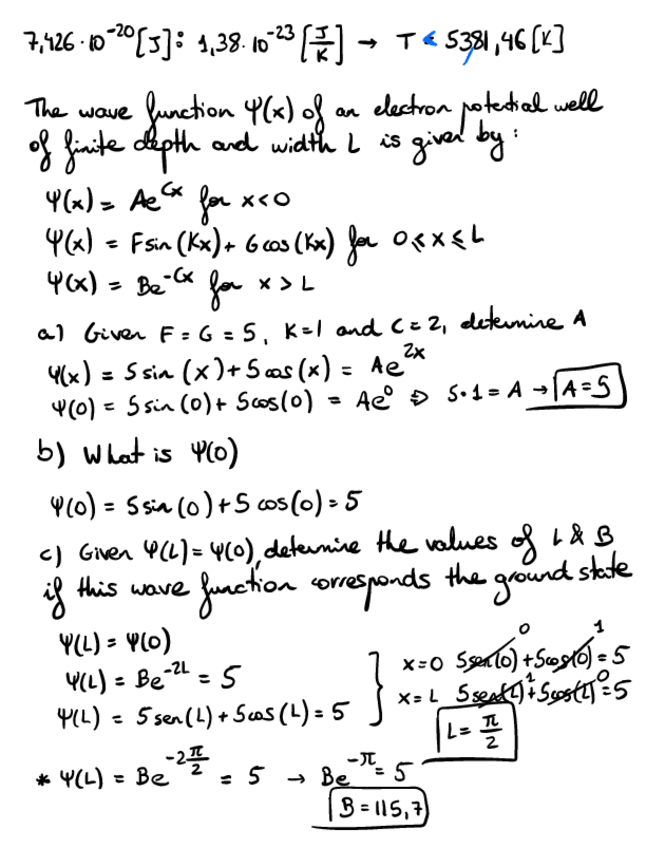 7,426·10⁻²⁰[J]: 1,38·10⁻²³ [J/K] → T < 5381,46[K]
The wave function Ψ(x) of an electron potential well
of finite depth and width L is given by:
Ψ(x) = Ae^Cx for x<0
Ψ(x) = Fsin(Kx)+ Gcos(Kx) for 0≤x≤L
Ψ(x) = Be^-Cx for x>L
a) Given F=G=5, K=1 and C=2, determine A
Ψ(x) = 5sin(x)+5cos(x) = Ae^2x
Ψ(0) = 5sin(0)+5cos(0) = Ae^0 ⇒ 5·1=A → A=5
b) What is Ψ(0)
Ψ(0) = 5sin(0)+5cos(0)=5
c) Given Ψ(L)=Ψ(0), determine the values of L & B
if this wave function corresponds the ground state
Ψ(L) = Ψ(0)
Ψ(L) = Be^-2L = 5
Ψ(L) = 5sen(L)+5cos(L)=5
x=0 5sen(0)+5cos(0)=5
0 1
x=L 5sen(L)+5cos(L)=5
1 0
L=π/2
* Ψ(L) = Be^-2π/2 = 5 → Be^-π = 5
B=115,7